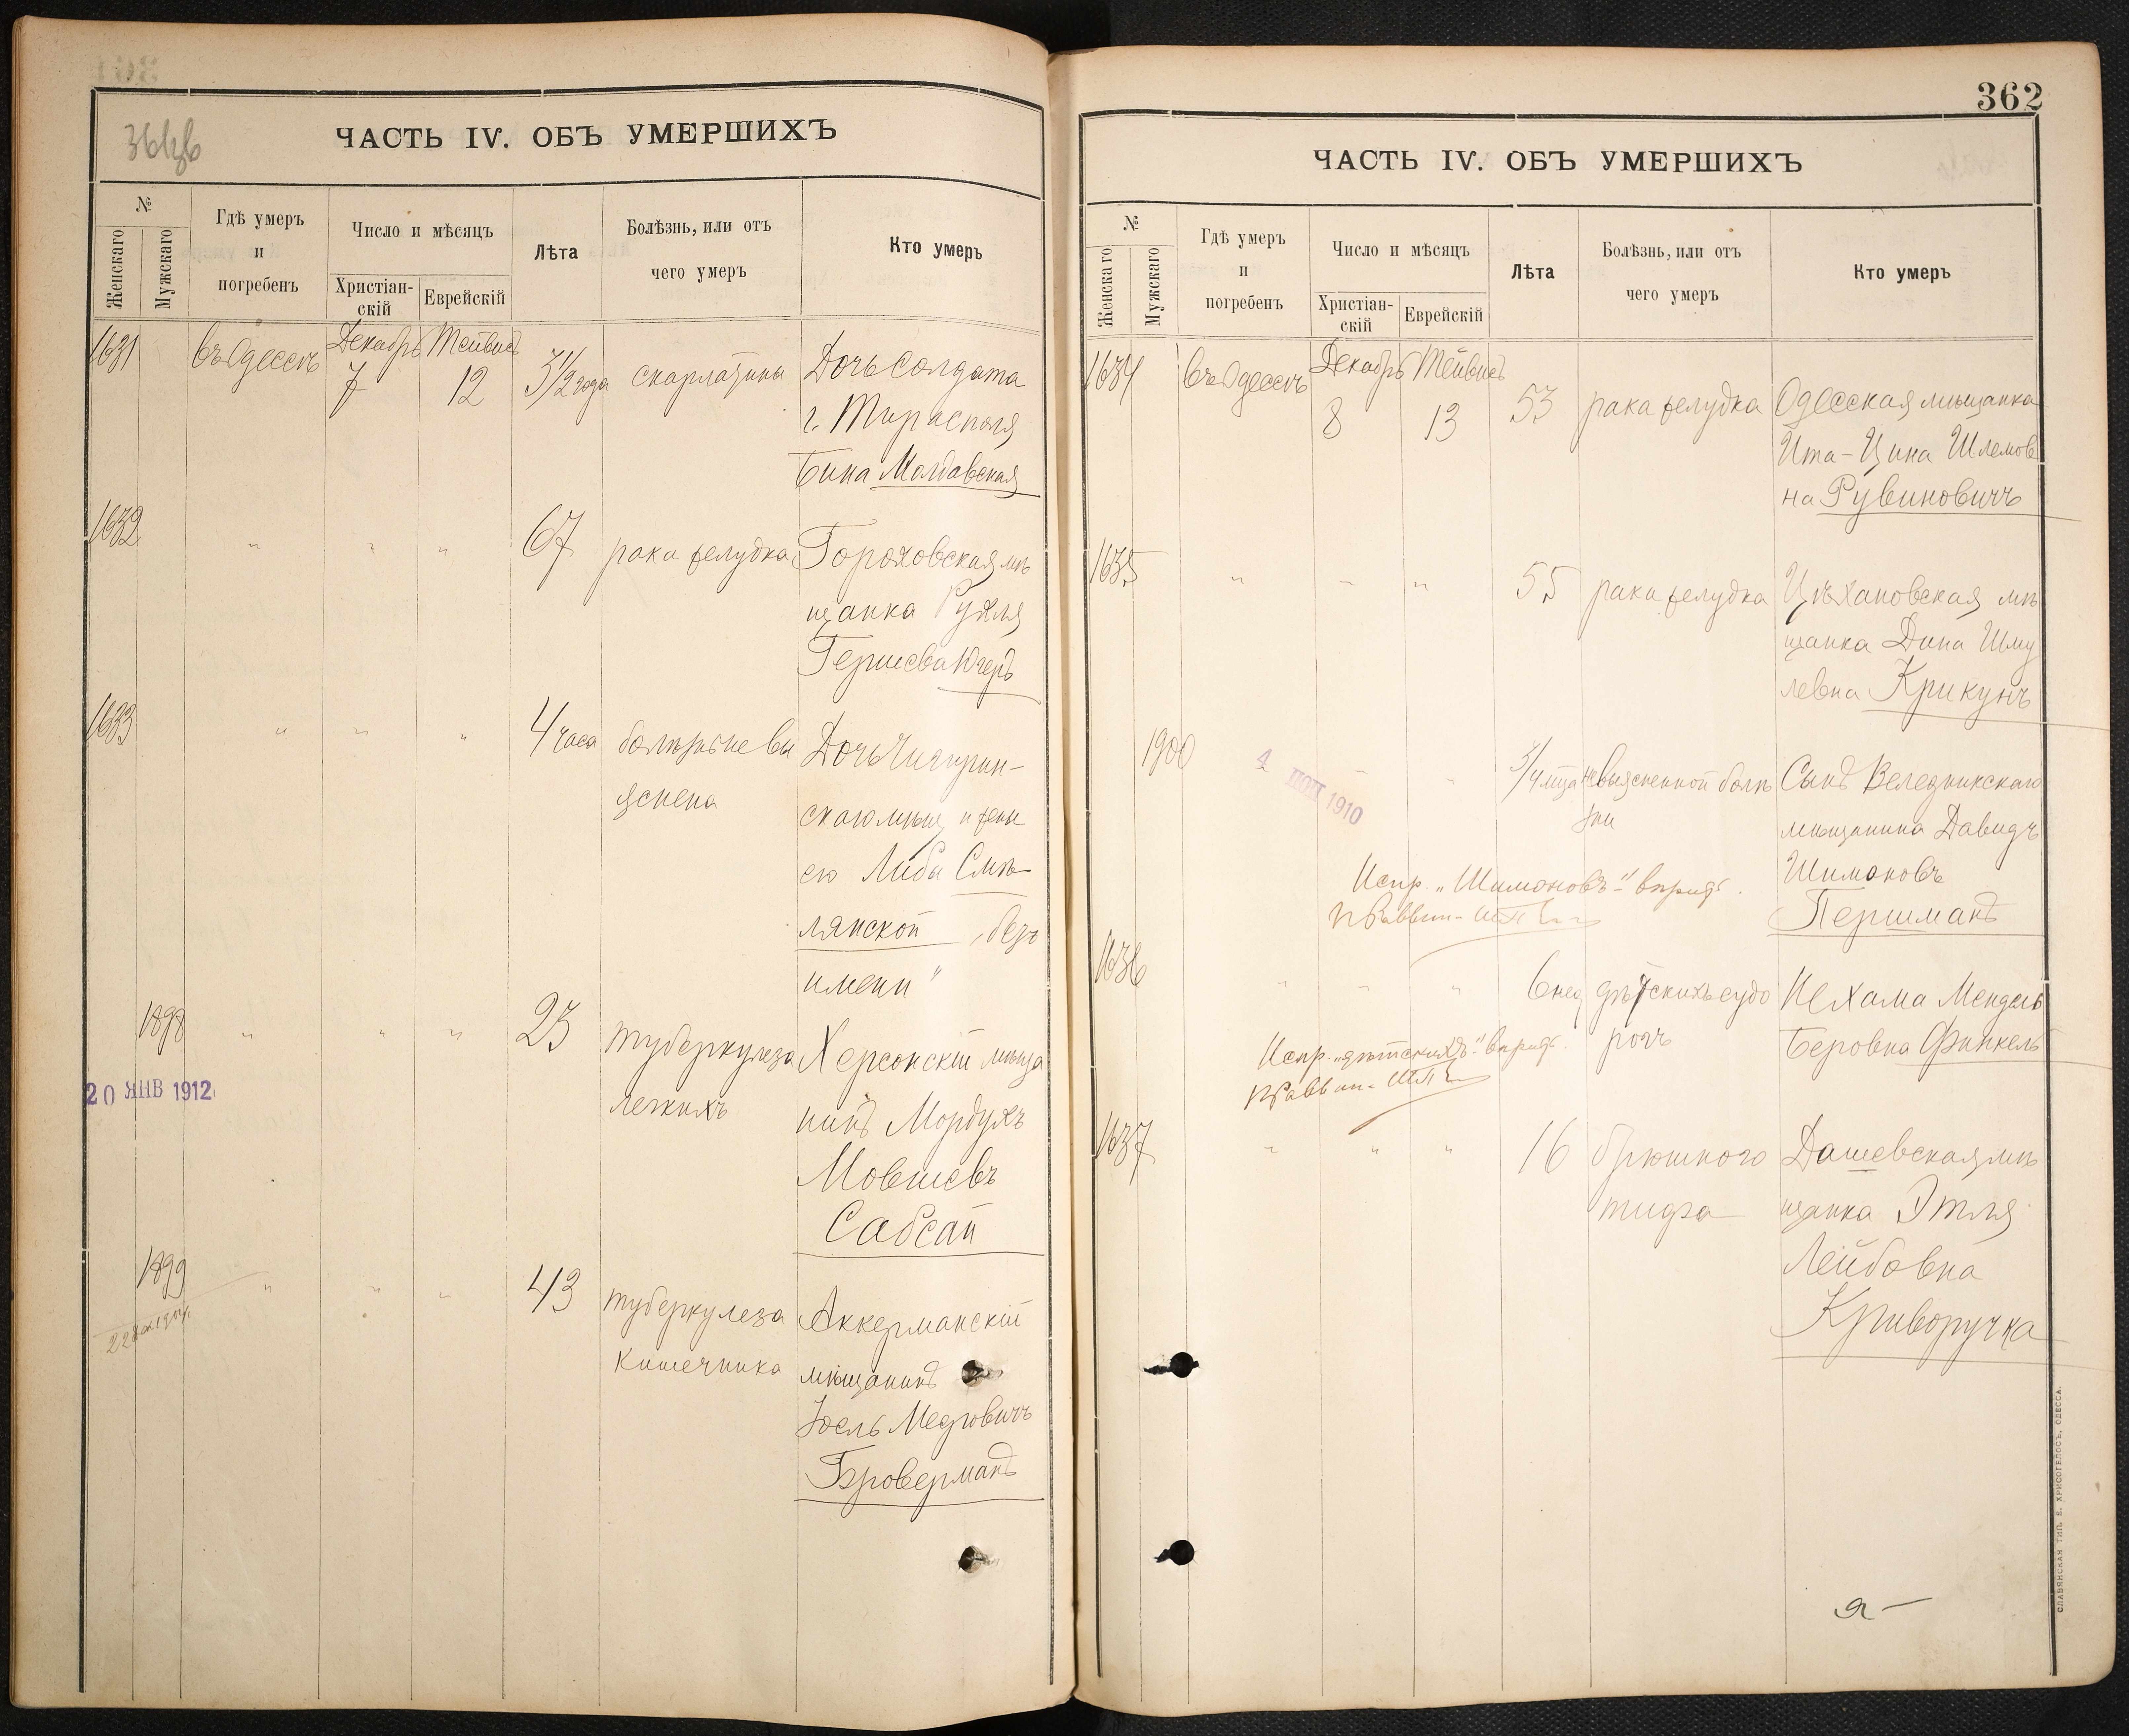 ЧАСТЬ IV. ОБЪ УМЕРШИХЪ
№
Женскаго
Мужскаго
Гдѣ умеръ
и
погребенъ
Число и мѣсяцъ
Христіан-
скій
Еврейскій
Лѣта
Болѣзнь, или отъ
чего умеръ
Кто умеръ
1631
въ Одессѣ
Декабрь
7
Тейвисъ
12
3 1/2 года
скарлатины
Дочь солдата
г. Тирасполя
Бина Молдавская
1632
"
"
"
67
рака желудка
Гороховская мѣ
щанка Рухля
Гершева Югеръ
1633
"
"
"
4 часа
болѣзнь не вы
яснена
Дочь Чигирин-
ской мѣщ.
Либы Смѣ-
лянской „безъ
имени"
1898
"
"
"
20 ЯНВ 1912
туберкулеза
легкихъ
Херсонскій мѣща
нинъ Мордухъ
Мовшевъ
Сабсай
1899
"
"
"
43
туберкулеза
кишечника
Аккерманскій
мѣщанинъ
Іосль
Броверманъ
362
ЧАСТЬ IV. ОБЪ УМЕРШИХЪ
№
Женскаго
Мужскаго
Гдѣ умеръ
и
погребенъ
Число и мѣсяцъ
Христіан-
скій
Еврейскій
Лѣта
Болѣзнь, или отъ
чего умеръ
Кто умеръ
1634
въ Одессѣ
Декабрь
8
Тейвисъ
13
53
рака желудка
Одесская мѣщанка
Ита-Цина Шлемов
на Рувиновичъ
1635
"
"
"
55
рака желудка
Цѣхановская мѣ
щанка Дина Шму
левна Крикунъ
1900
4 1910
"
"
3/4 мца
невыясненной болѣ
зни
Сынъ Веледникскаго
мѣщанина Давидъ
Шимоновъ
Першманъ
Испр. „Шимоновъ"
1636
"
"
"
6 нед
дѣтскихъ судо
рогъ
Нехама Мендель
Беровна Финкель
Испр. „дѣтскихъ"
1637
"
"
"
16
брюшного
тифа
Дашевская мѣ
щанка Этля
Лейбовна
Криворучка
СЛАВЯНСКАЯ ТИП. Е. ХРИСОГЕЛОСЪ, ОДЕССА.